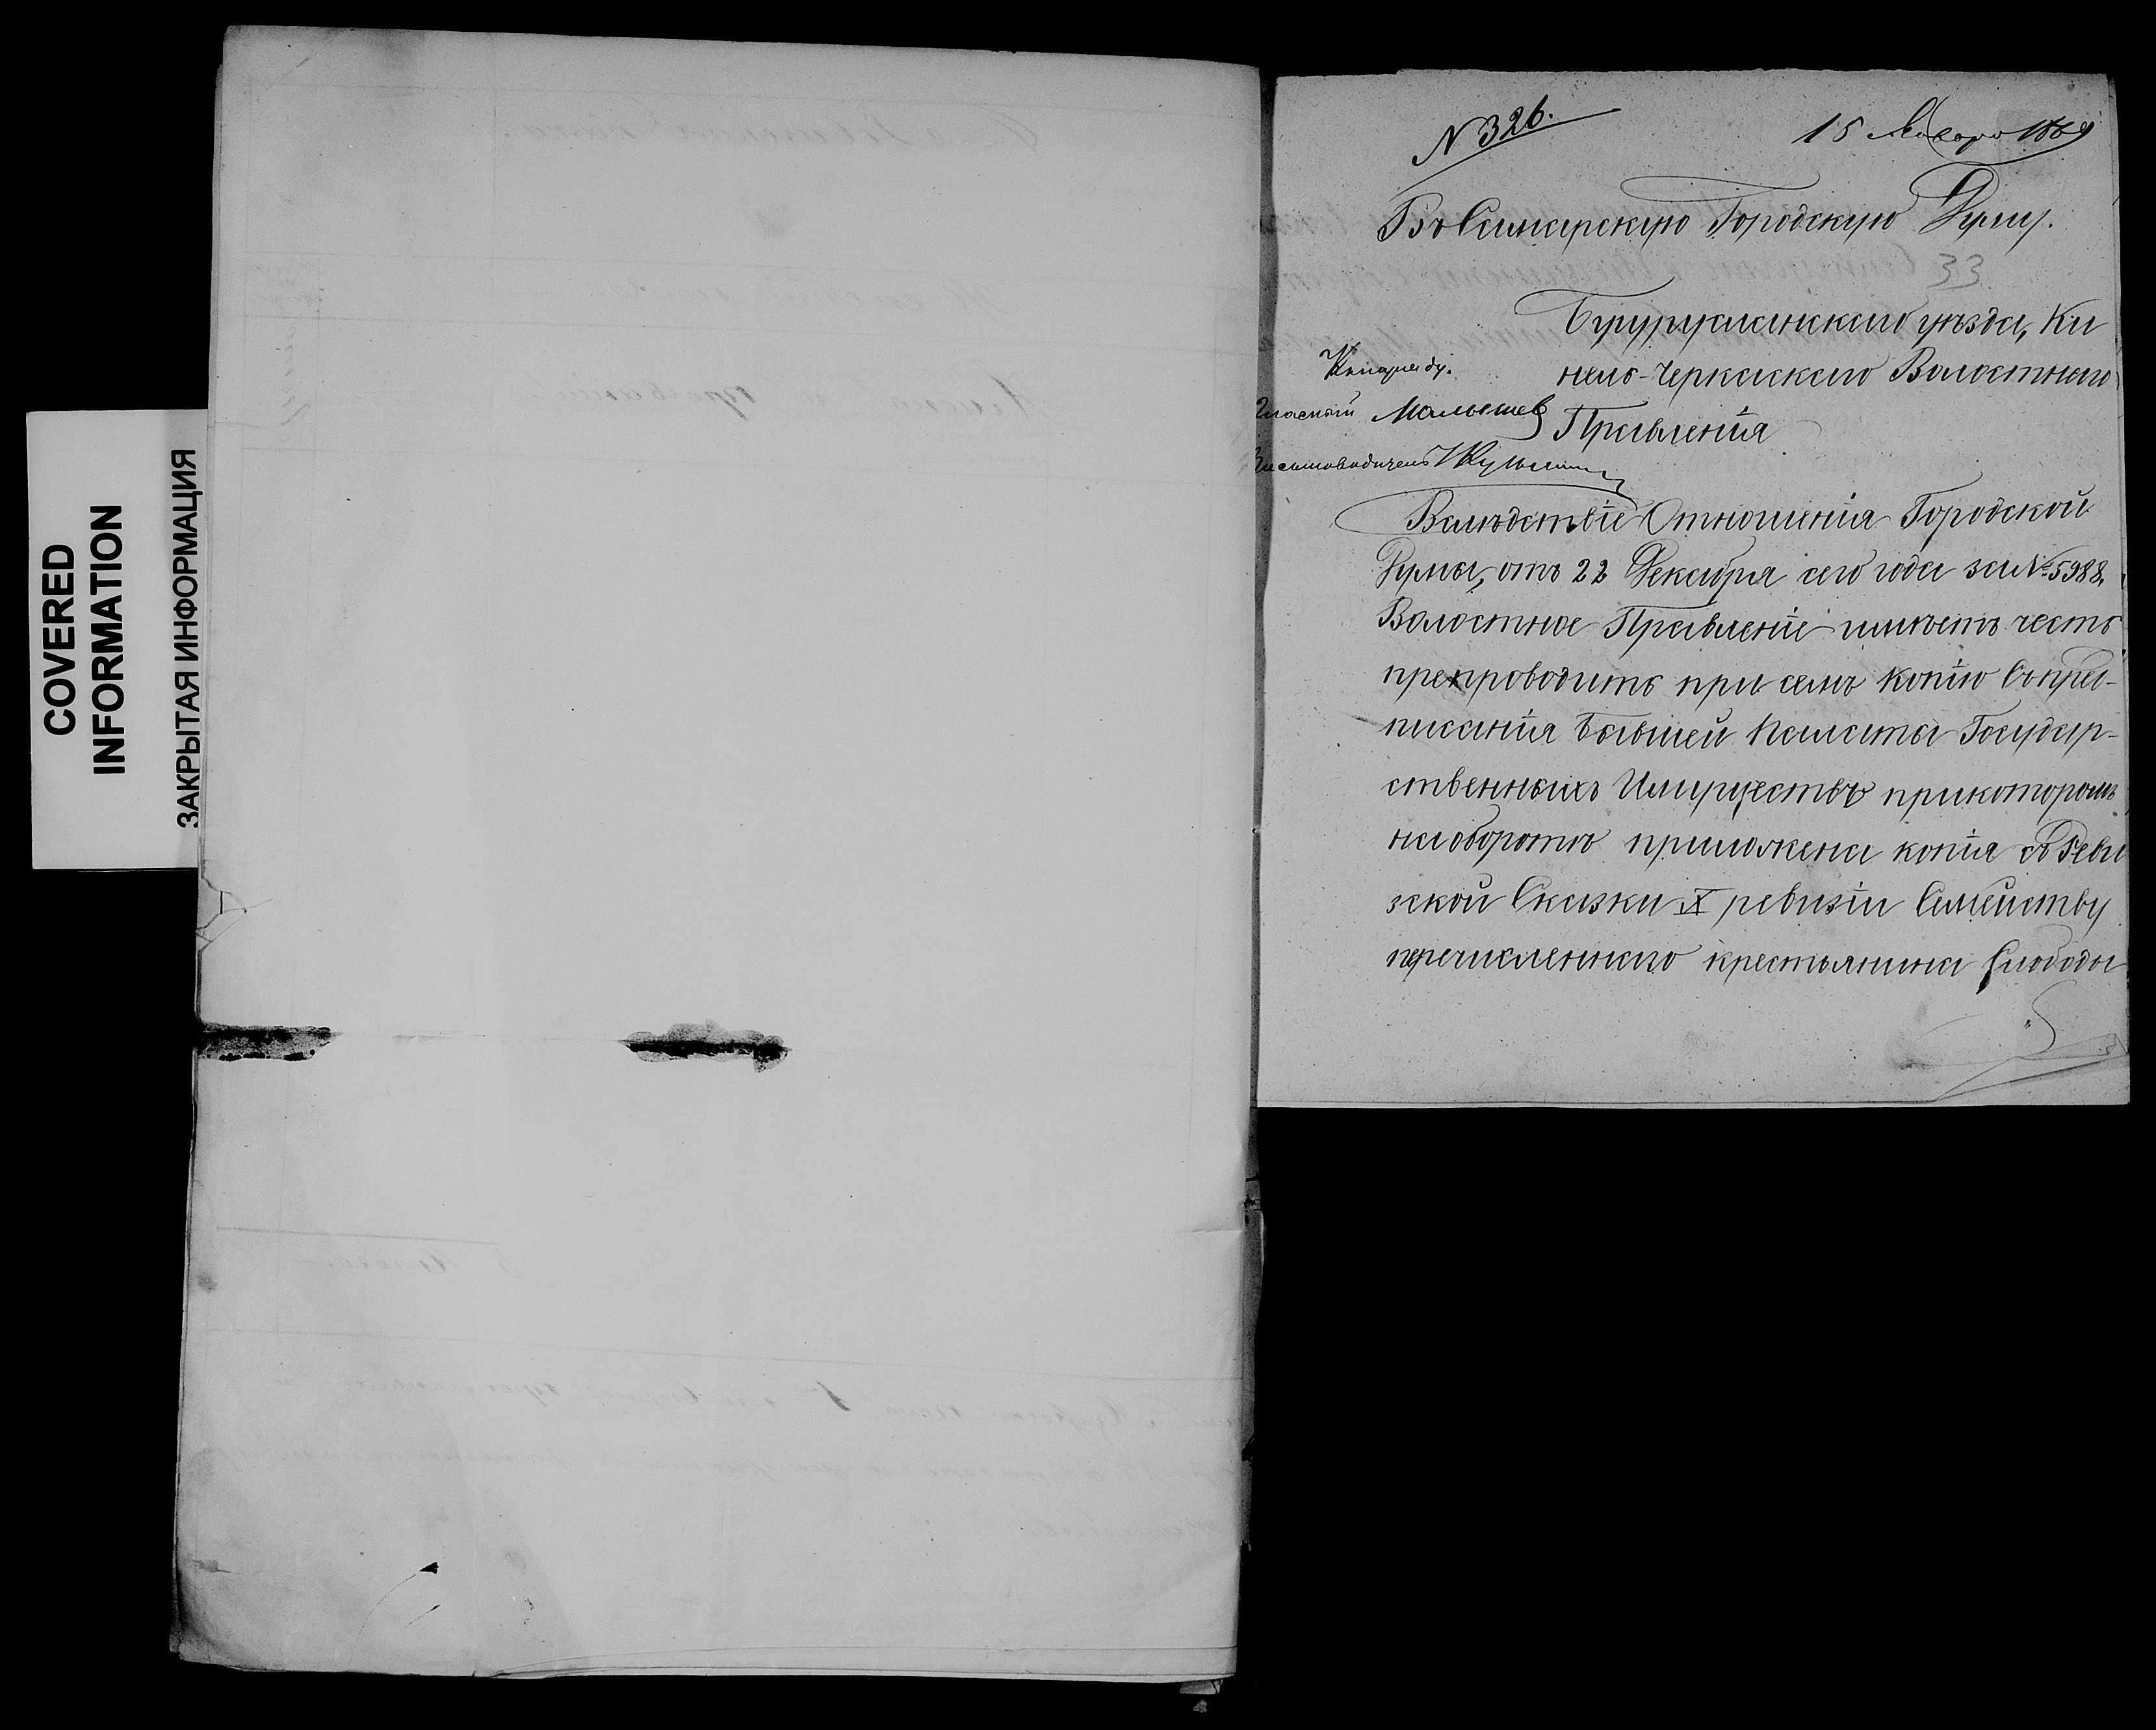 COVERED
INFORMATION
ЗАКРЫТАЯ ИНФОРМАЦИЯ
N 326.
15 Января 1869
Въ Самарскую Городскую Думу.
33
Бугурусланскаго уѣзда, Ки
нель-Черкаскаго Волостнаго
Правленія
Къ наряду.
Гласный Малышев
Письмоводитель
Вслѣдствіе Отношенія Городской
Думы, отъ 22 Декабря сего года за № 5988,
Волостное Правленіе имѣетъ честь
препроводить при семъ копію Съ пред-
писанія Бывшей Палаты Государ-
ственныхъ Имуществъ прикоторомъ
наоборотѣ приложена копія съ Реви
зской Сказки X ревизіи Семейству
перечисленнаго крестьянина Слободы